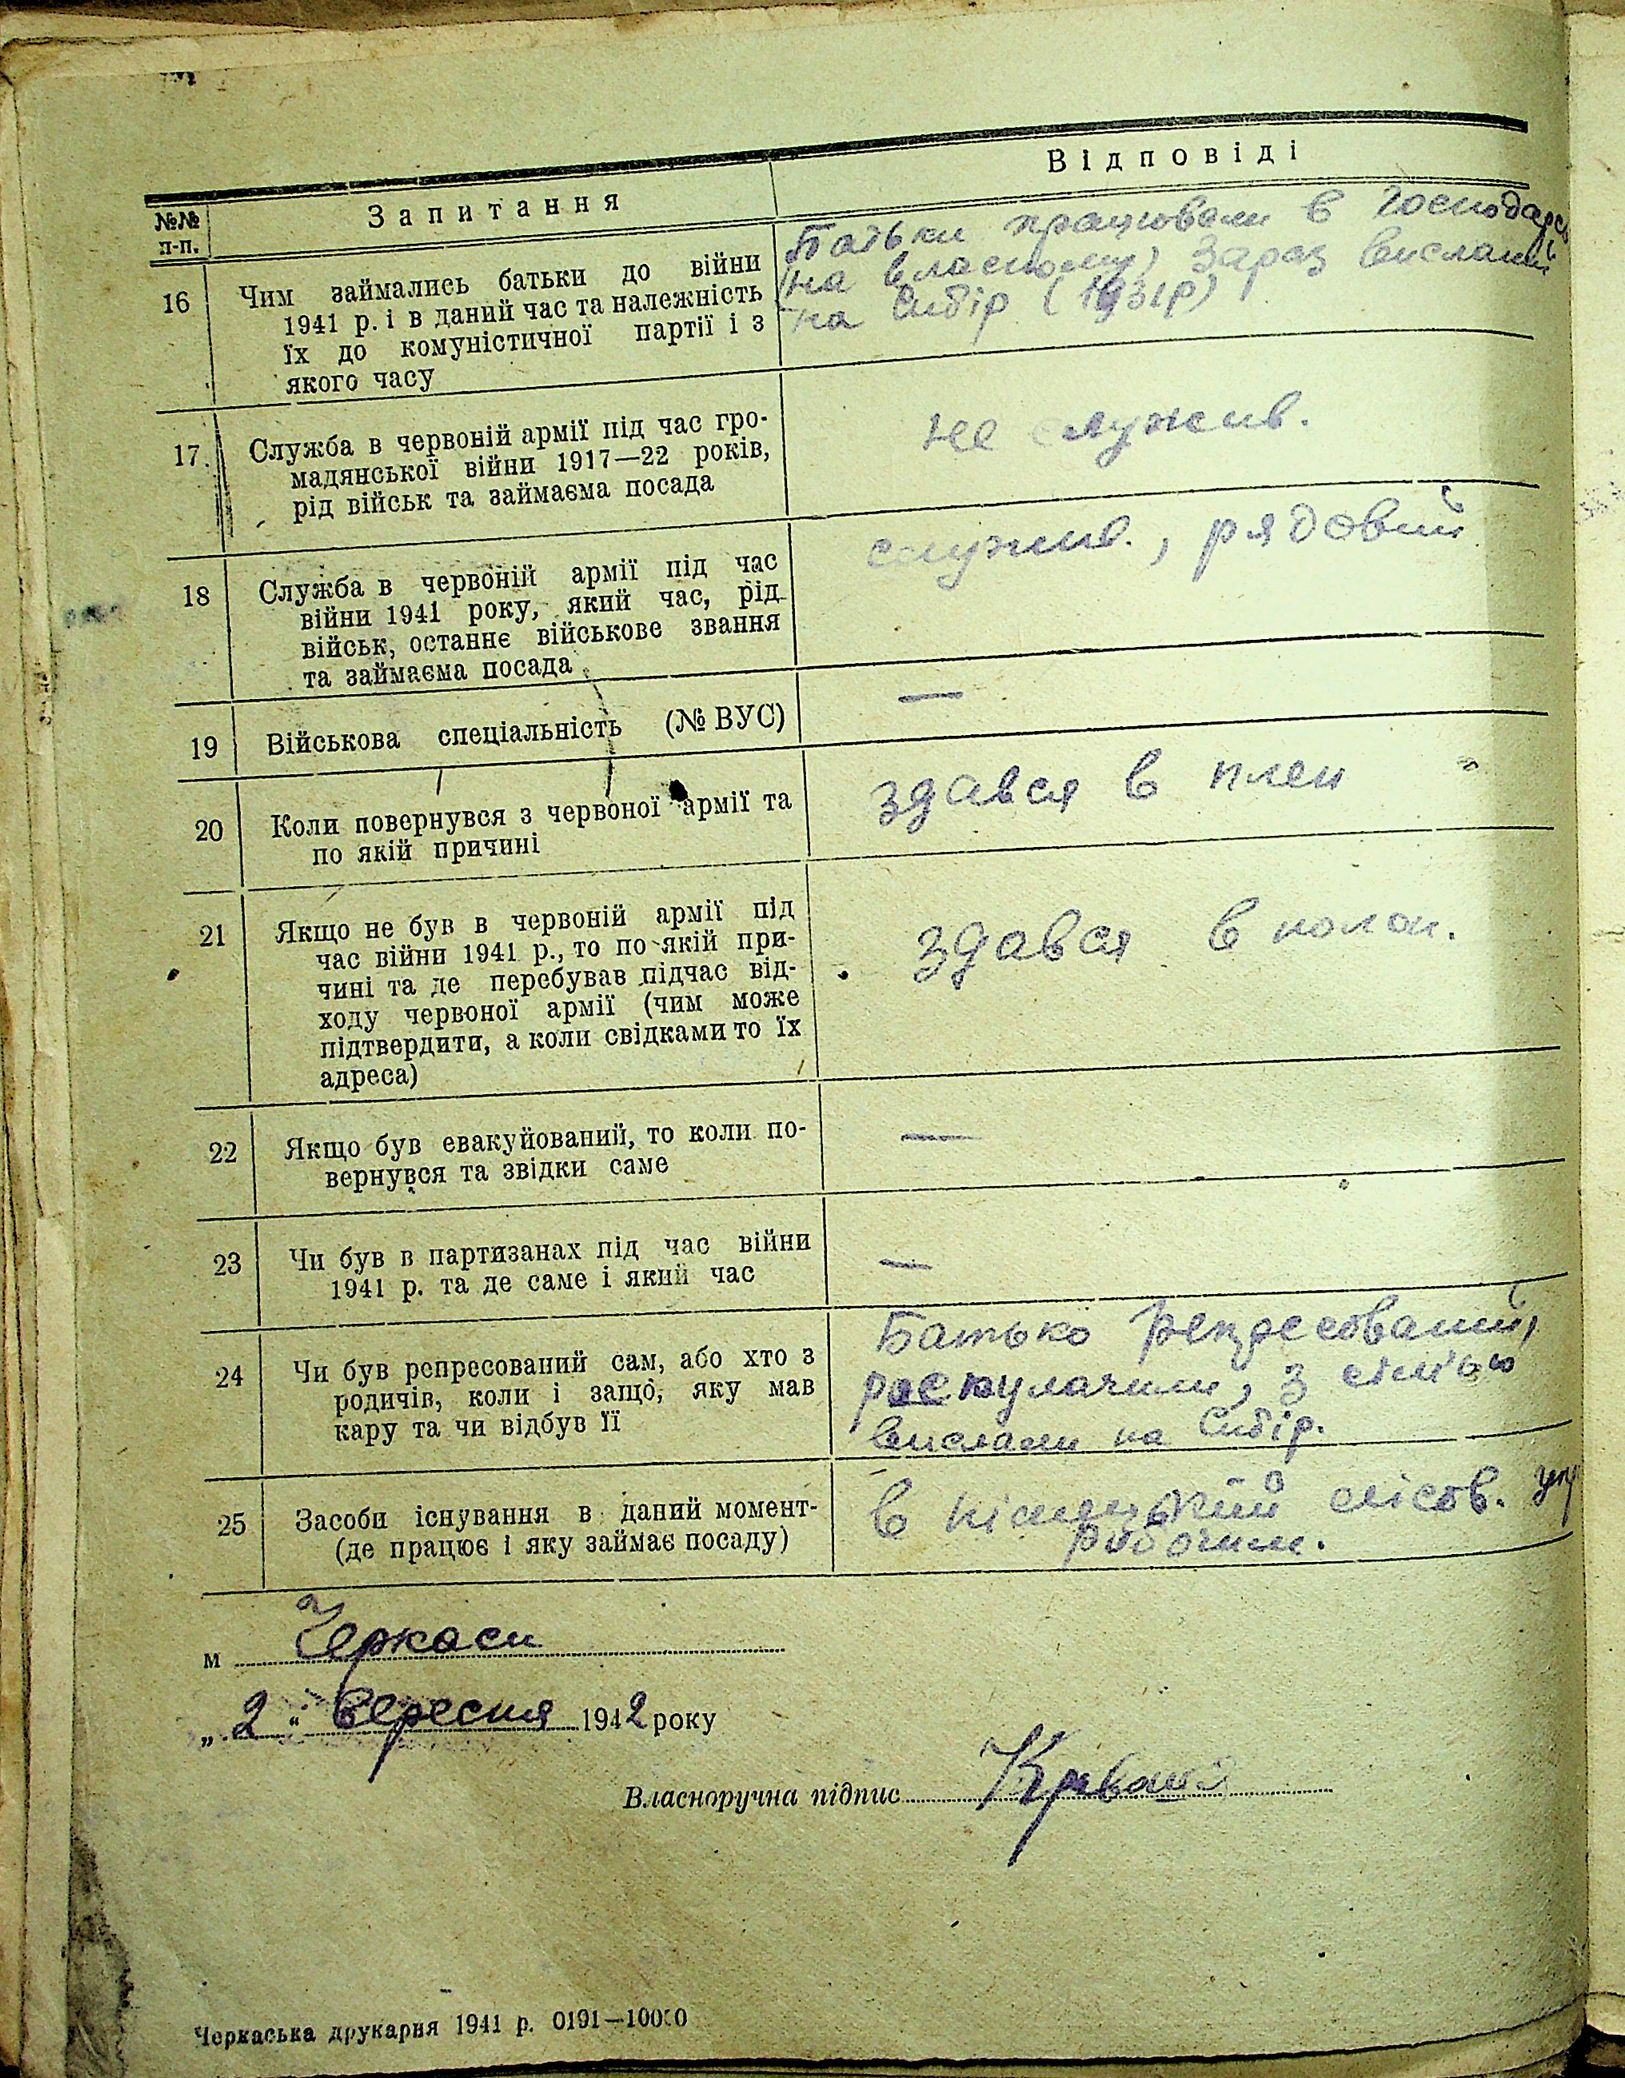 №№ п-п.
Запитання
Відповіді
16
Чим займались батьки до війни
1941 р. і в даний час та належність
їх до комуністичної партії і з
якого часу
Батьки працювали в господарсь
на власному, зараз вислані
на Сибір (1931р)
17.
Служба в червоній армії під час гро-
мадянської війни 1917—22 років,
рід військ та займаєма посада
не служив.
18
Служба в червоній армії під час
війни 1941 року, який час, рід
військ, останнє військове звання
та займаєма посада
служив., рядовий
19
Військова спеціальність (№ ВУС)
—
20
Коли повернувся з червоної армії та
по якій причині
здався в плен
21
Якщо не був в червоній армії під
час війни 1941 р., то по якій при-
чині та де перебував підчас від-
ходу червоної армії (чим може
підтвердити, а коли свідками то їх
адреса)
здався в полон.
22
Якщо був евакуйований, то коли по-
вернувся та звідки саме
—
23
Чи був в партизанах під час війни
1941 р. та де саме і який час
—
24
Чи був репресований сам, або хто з
родичів, коли і защо, яку мав
кару та чи відбув її
Батько репресований,
роскулачили, з сім'ью
вислали на Сибір.
25
Засоби існування в даний момент-
(де працює і яку займає посаду)
в німецький лісов.
робочим.
м Черкаси
„2" вересня 1942 року
Власноручна підпис
Черкаська друкарня 1941 р. 0191—10000